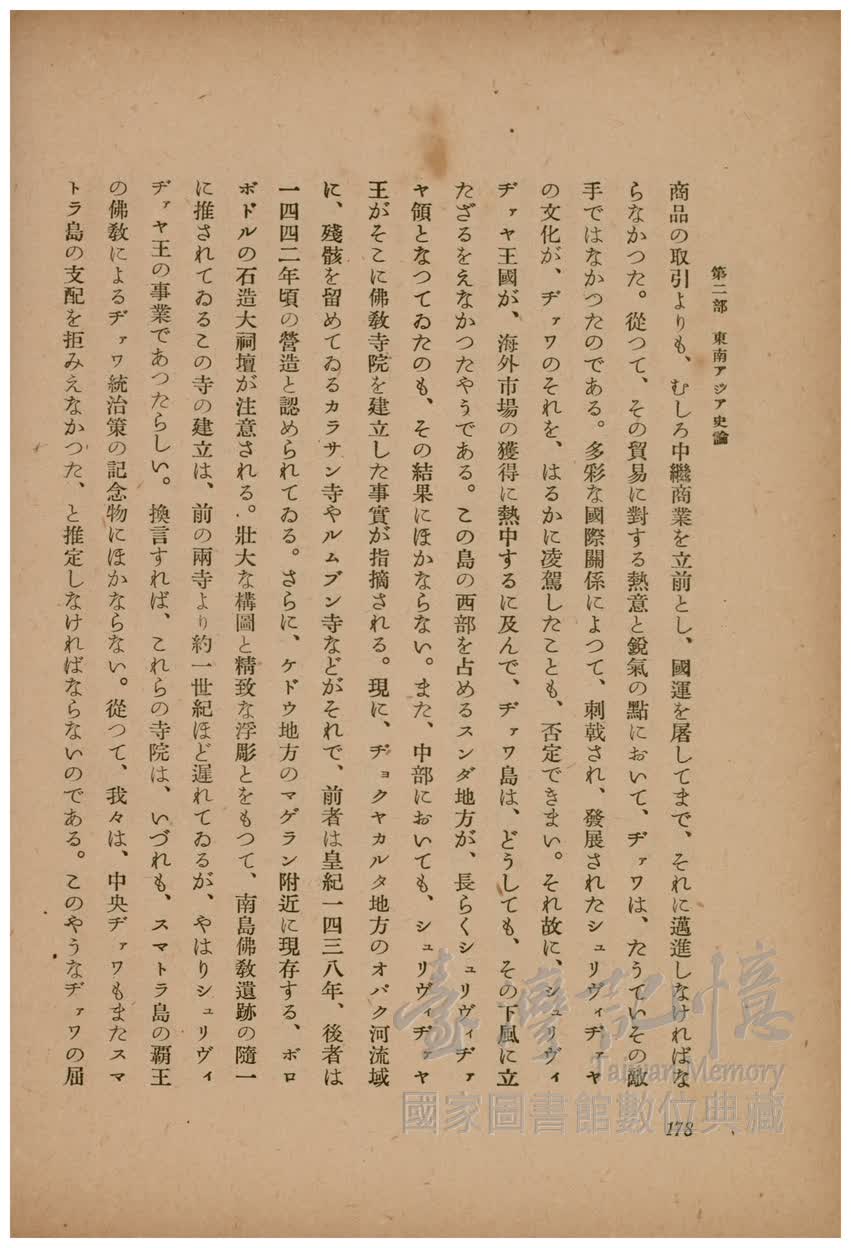 第二部　東南アジア史論
商品の取引よりも、むしろ中繼商業を立前とし、國運を屠してまで、それに邁進しなければな
らなかつた。從つて、その貿易に對する熱意と鋭氣の點において、ヂァワは、たうていその敵
手ではなかつたのである。多彩な國際關係によつて、刺戟され、發展されたシュリヴィヂァヤ
の文化が、ヂァワのそれを、はるかに凌駕したことも、否定できまい。それ故に、シュリヴィ
ヂァヤ王國が、海外市場の獲得に熱中するに及んで、ヂァワ島は、どうしても、その下風に立
たざるをえなかつたやうである。この島の西部を占めるスンダ地方が、長らくシュリヴィヂァ
ヤ領となつてゐたのも、その結果にほかならない。また、中部においても、シュリヴィヂァヤ
王がそこに佛教寺院を建立した事實が指摘される。現に、ヂョクヤカルタ地方のオパク河流域
に、殘骸を留めてゐるカラサン寺やルムブン寺などがそれで、前者は皇紀一四三八年、後者は
一四四二年頃の營造と認められてゐる。さらに、ケドウ地方のマゲラン附近に現存する、ボロ
ボドルの石造大祠壇が注意される。壯大な構圖と精致な浮彫とをもつて、南島佛教遺跡の隨一
に推されてゐるこの寺の建立は、前の兩寺より約一世紀ほど遲れてゐるが、やはりシュリヴィ
ヂァヤ王の事業であつたらしい。換言すれば、これらの寺院は、いづれも、スマトラ島の覇王
の佛教によるヂァワ統治策の記念物にほかならない。從つて、我々は、中央ヂァワもまたスマ
トラ島の支配を拒みえなかつた、と推定しなければならないのである。このやうなヂァワの屈
178
臺灣記憶
Taiwan Memory
國家圖書館數位典藏